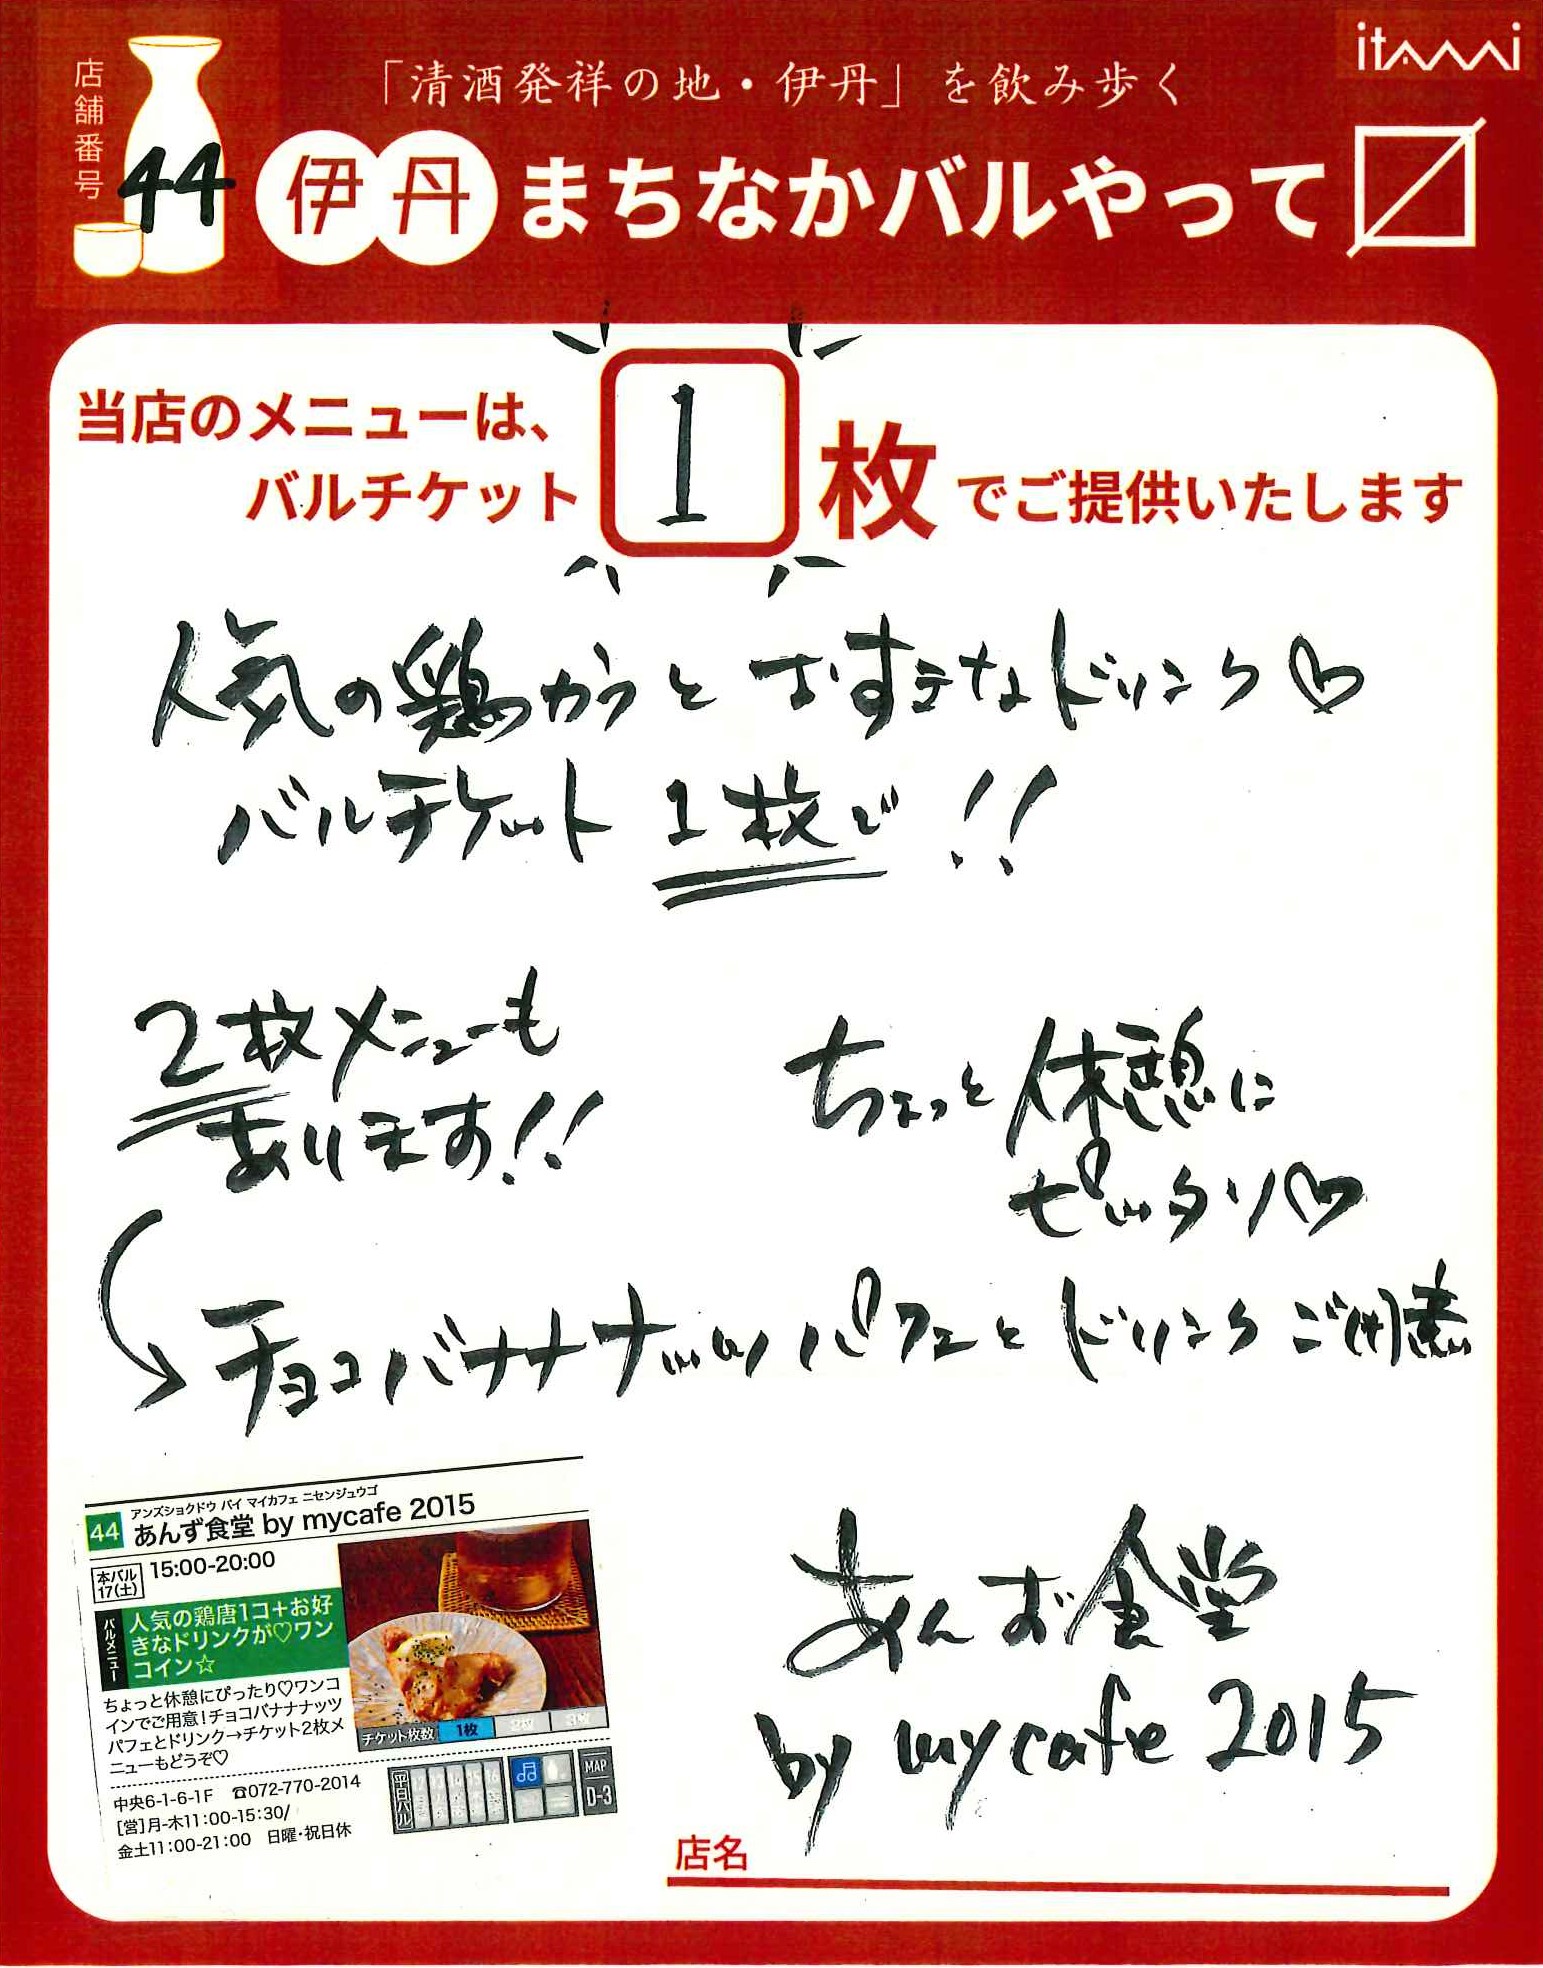 itami
店舗番号
44
「清酒発祥の地・伊丹」を飲み歩く
伊丹まちなかバルやって
当店のメニューは、
バルチケット 1 枚でご提供いたします
人気の鶏からと おすきなドリンク♡
バルチケット 1枚で!!
2枚メニューも
あります!!
ちょっと休憩に
ピッタリ♡
チョコバナナナッツパフェとドリンクご用意
アンズショクドウ バイ マイカフェ ニセンジュウゴ
44 あんず食堂 by mycafe 2015
本バル
17(土)
15:00-20:00
バルメニュー
人気の鶏唐1コ+お好
きなドリンクが♡ワン
コイン☆
ちょっと休憩にぴったり♡ワンコ
インでご用意!チョコバナナナッツ
パフェとドリンク→チケット2枚メ
ニューもどうぞ♡
チケット枚数 1枚 2枚 3枚
中央6-1-6-1F ☎072-770-2014
[営]月-木11:00-15:30/
金土11:00-21:00 日曜・祝日休
平日バル
MAP
D-3
あんず食堂
by mycafe 2015
店名